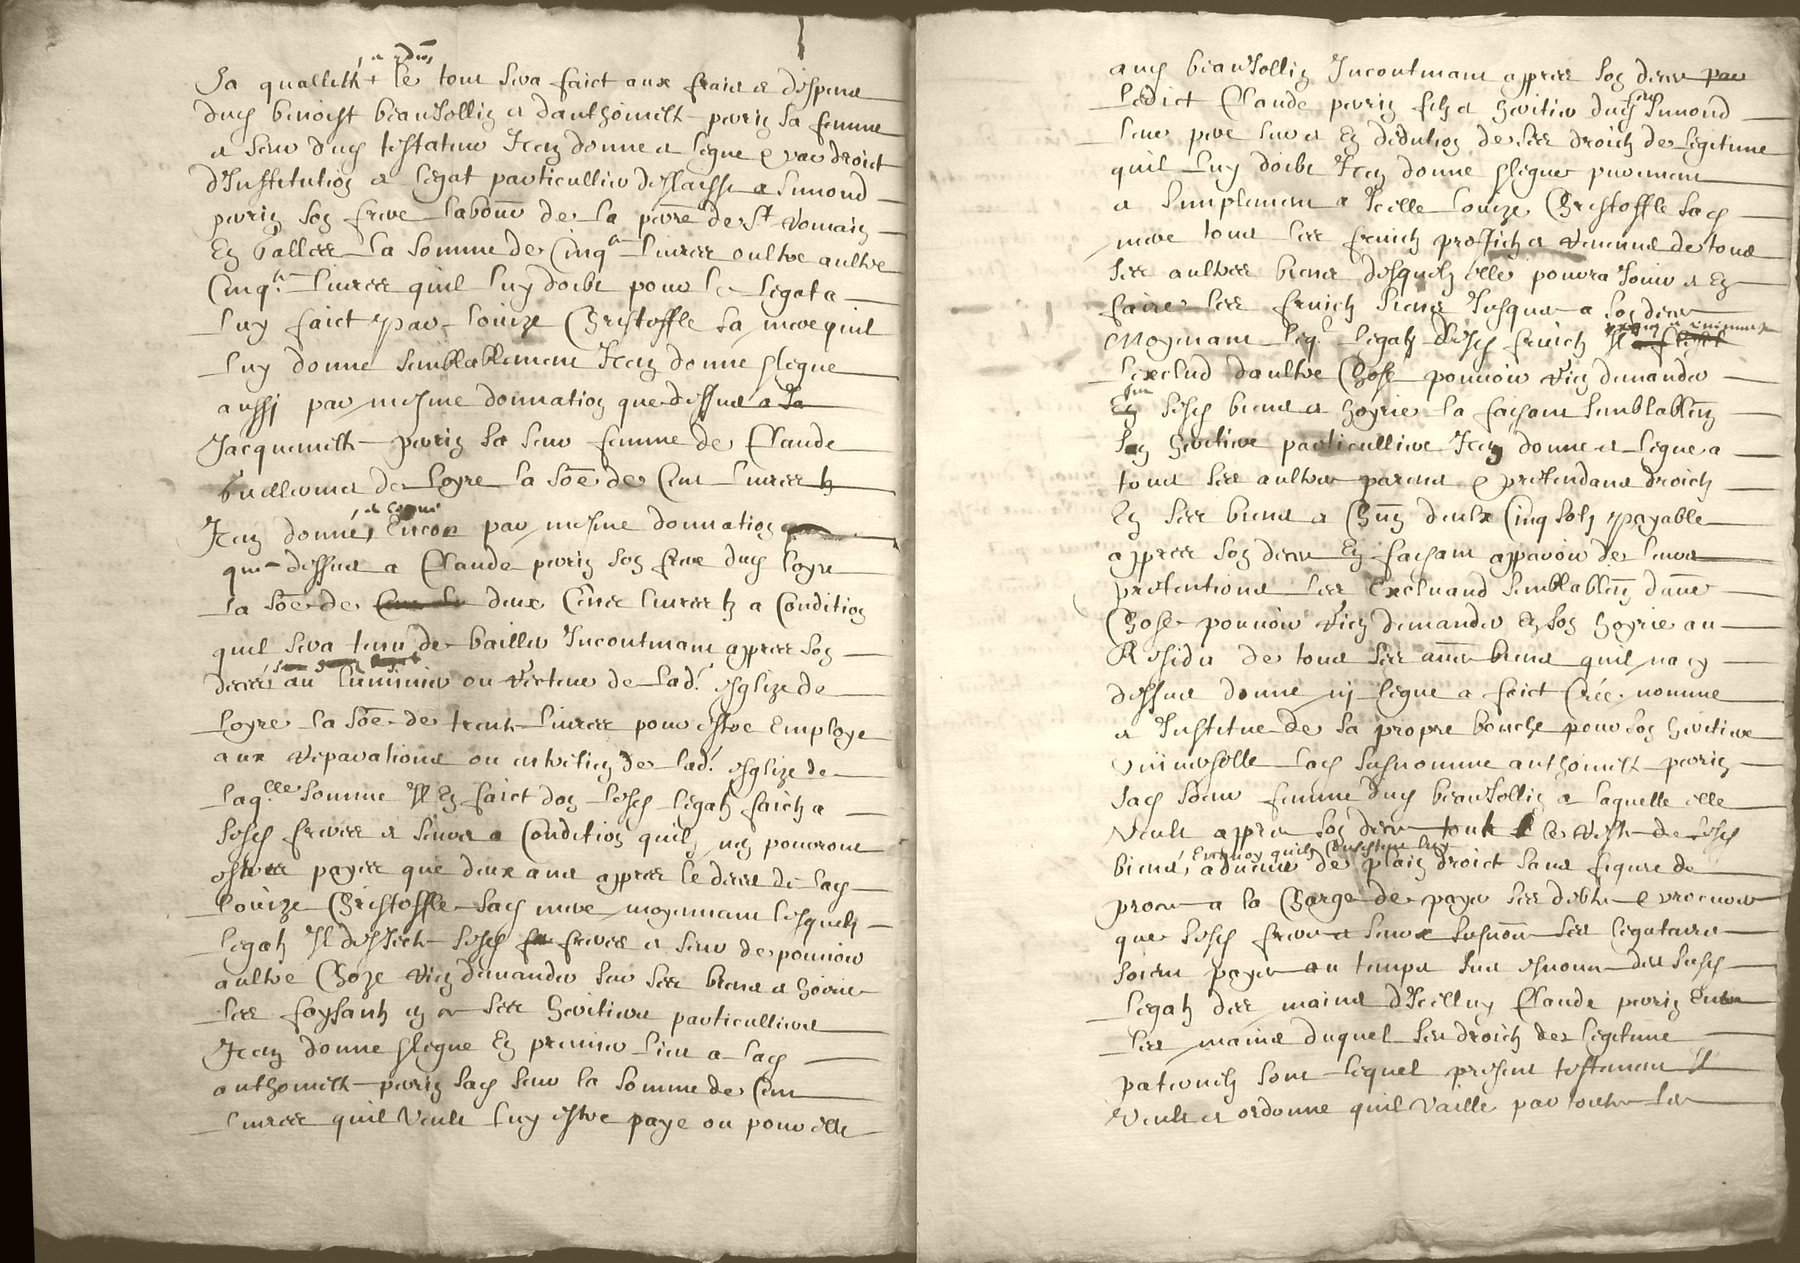 sa quallith + le tout sera faict aux fraix et despens
dud benoist beaujollin et danthoineth perrin sa femme
et seur dud testateur Item donne et legue par droict
dInstitution et legat particullier delaisse a Simond
perrin son frere labour de la pare de St Romain
En Jallees la somme de Cinqte livres oultre aultre
Cinqte livres quil luy doibt pour le legat a
luy faict par louize Christoffle sa mere quil
luy donne semblablement Item donne legue
aussy par mesme donnation que dessus a
Jacquemeth perrin sa seur femme de Claude
de loyre la soe de Cent livres tz
Item donne Encor par mesme donnation
que dessus a Claude perrin son frere dud loyre
la soe de deux Cens livres tz a Condition
quil sera tenu de bailler Incontinant appres son
deces au luminier ou recteur de lad. esglize de
loyre la soe de trente livres pour estre Employe
aux reparations ou entretien de lad. esglize de
laqlle somme Il En faict don lesd legatz faictz a
sesd freres et seurs a Condition quilz nen pourront
estre payes que deux ans appres le deces de lad
louize Christoffle sad mere moyennant lesquelz
legatz Il desjeth sesd freres et seur de pouvoir
aultre Choze rien demander sur ses biens et hoirie
les faysant en ses heritiers particulliers
Item donne legue En premier lieu a lad
anthoineth perrin sad seur la somme de Cent
livres quil veult luy estre paye ou pour elle
aud beaujollin Incontinant appres son deces par
ledict Claude perrin filz et heritier dud feu Simond
leur pere sur et En dedution de ses droictz de legitime
quil luy doibt Item donne legue purement
et simplement a Icelle louize Christoffle sad
mere tous les fruictz proffictz et revenus de tous
ses aultres biens desquelz elle pourra jouir et En
faire les fruictz siens Jusques a son deces
Moyenant leq. legatz desd fruictz Il
lexclud daultre Chose pouvoir rien demander
sur sesd biens et hoyrie la faisant semblablemt
son heritiere particulliere Item donne et legue a
tous ses aultres parens pretendans droictz
En ses biens et Chun deulx Cinq solz payable
appres son deces En faisant apparoir de leurs
pretentions les Excluand semblablemt daue
Chose pouvoir rien demander En son hoyrie au
Residu de tous ses aues biens quil na cy
dessus donne ny legue a faict Cree nomme
et Institue de sa propre bouche pour son heritiere
universelle lad susnomme anthoineth perrin
sad soeur femme dud beaujollin a laquelle elle
veult appres son deces le reste de sesd
biens, Ennoy quilz Consistent luy advenir de plain droict sans figure de
proces a la Charge de payer ses debtes procurer
que sesd freres et seurs susnom ses legataires
soient payes au temps sus desd
legatz des mains dIcelluy Claude perrin Entre
les mains duquel ses droictz de legitime
paternelz sont lequel present testament Il
veult et ordonne quil vaille par toutes les